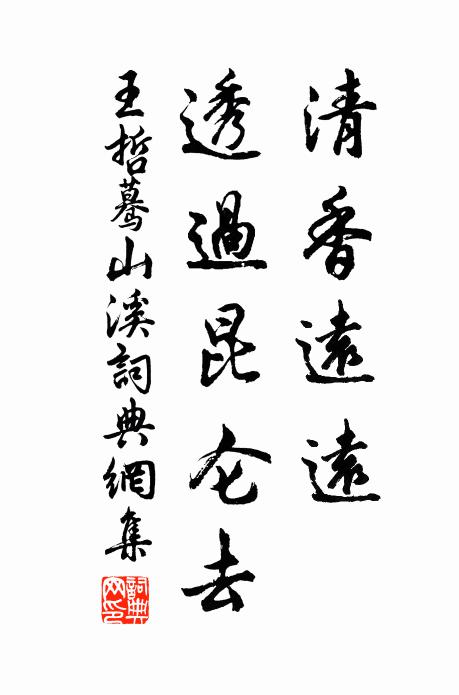 清香遠遠
透過昆仑去
王哲蓦山溪詞典網集
詞典网印